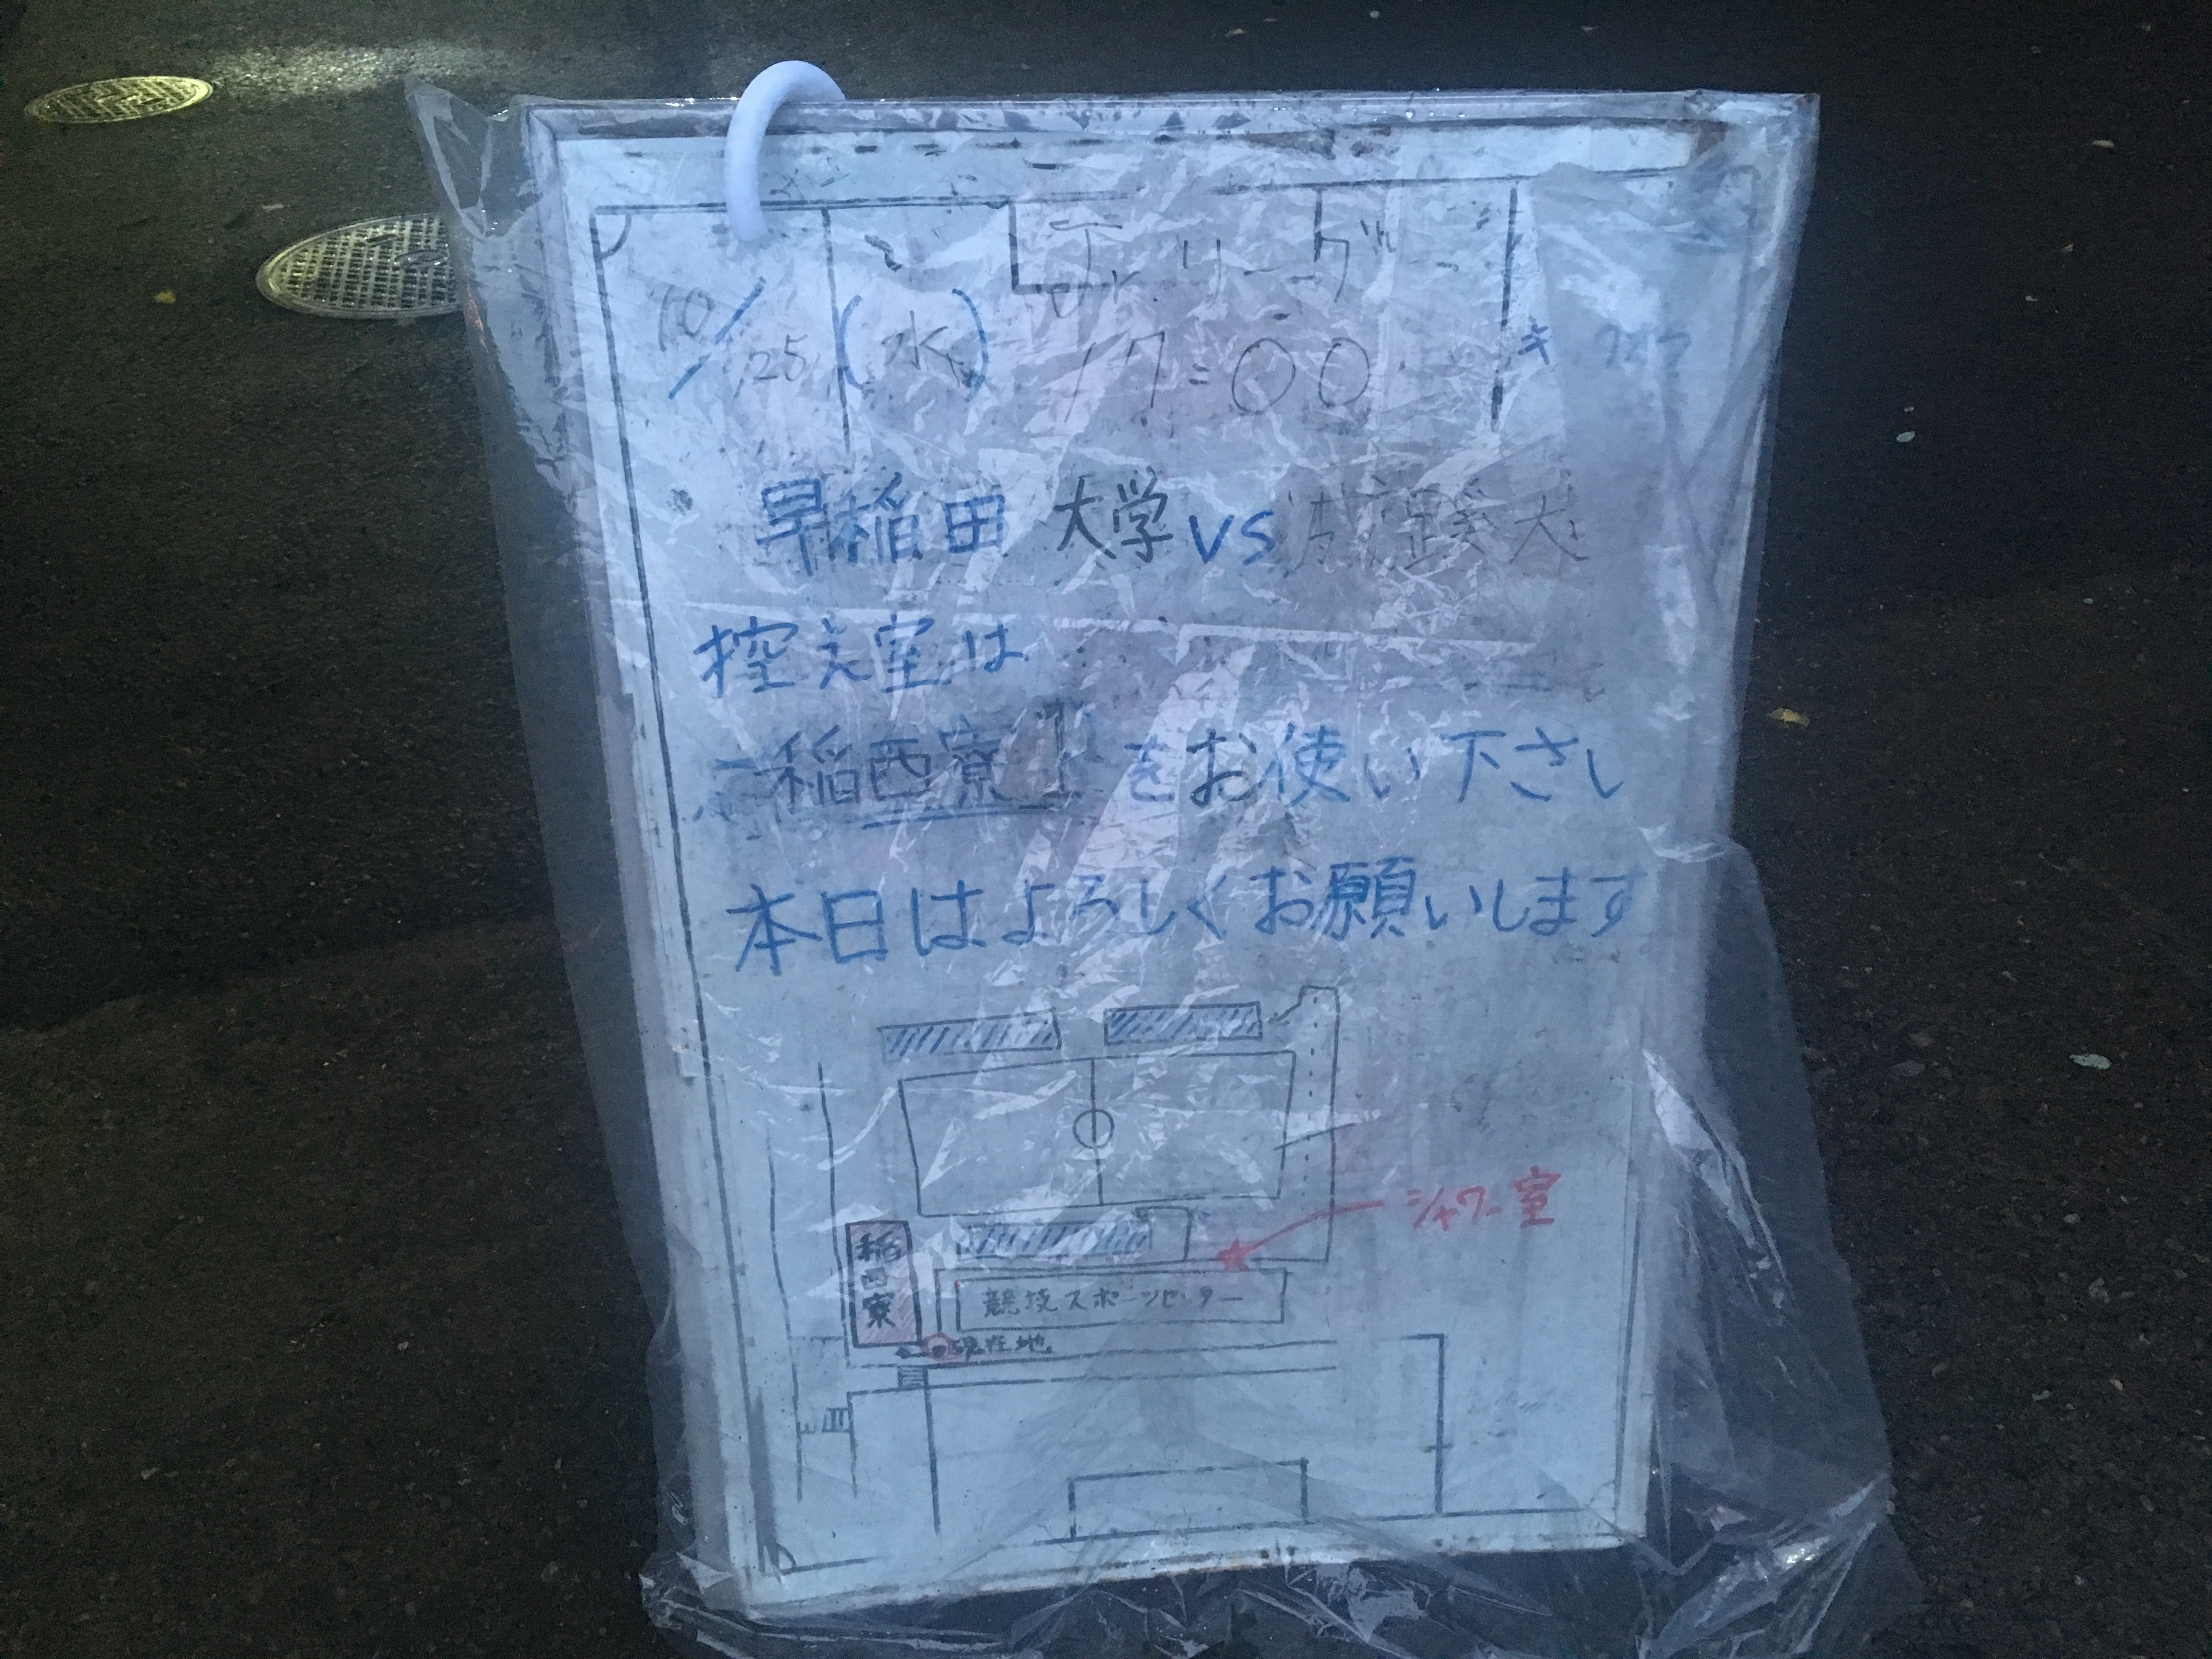 Jr リーグ
10/25 (水) 17:00
早稲田 大学 VS 成蹊大
控え室は
稲西寮1F をお使い下さい
本日はよろしくお願いします
シャワー室
稲西寮
競技スポーツセンター
現在地